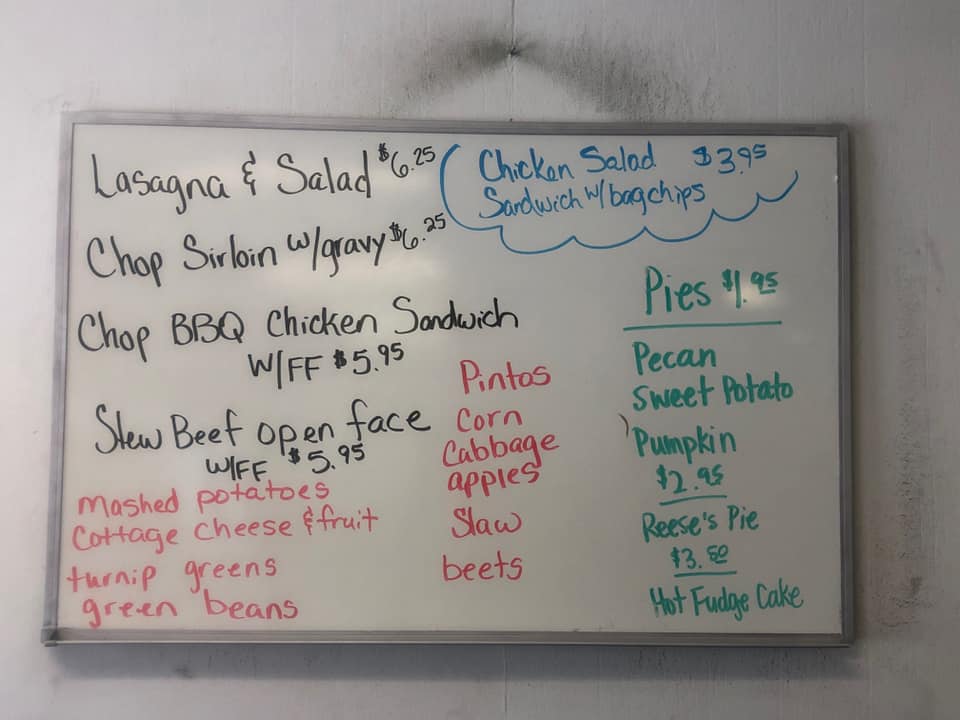 Lasagna & Salad $6.25
Chop Sirloin w/gravy $6.25
Chop BBQ Chicken Sandwich
W/FF $5.95
Stew Beef open face
W/FF $5.95
Mashed potatoes
Cottage cheese & fruit
turnip greens
green beans
Pintos
Corn
Cabbage
apples
Slaw
beets
Chicken Salad $3.95
Sandwich w/bag chips
Pies $1.95
Pecan
Sweet Potato
Pumpkin
$2.95
Reese's Pie
$3.50
Hot Fudge Cake